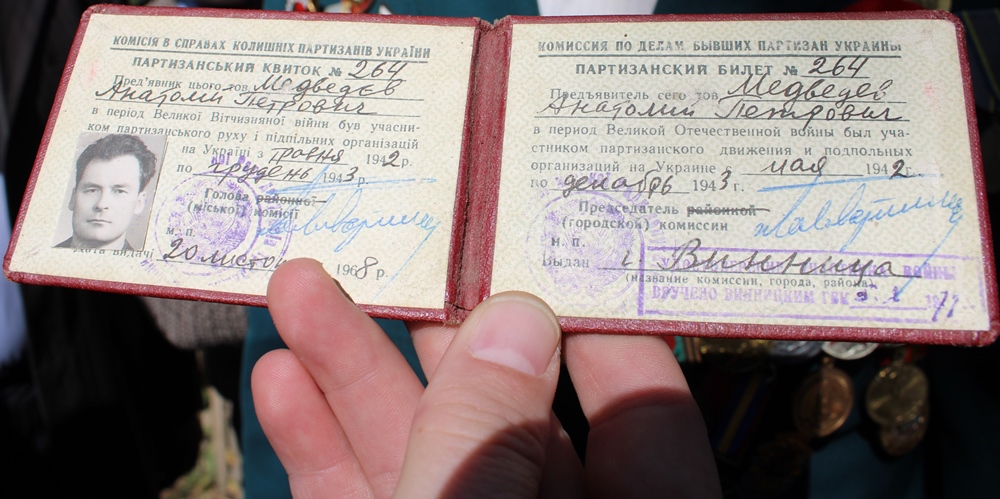 КОМІСІЯ В СПРАВАХ КОЛИШНІХ ПАРТИЗАНІВ УКРАЇНИ
ПАРТИЗАНСЬКИЙ КВИТОК № 264
Пред'явник цього тов. Медведєв
Анатолій Петрович
в період Великої Вітчизняної війни був учасни-
ком партизанського руху і підпільних організацій
на Україні з травня 1942 р.
по грудень 1943 р.
Голова районної
(міської) комісії
М. П.
Дата видачі 20 листоп 1968 р.
КОМИССИЯ ПО ДЕЛАМ БЫВШИХ ПАРТИЗАН УКРАИНЫ
ПАРТИЗАНСКИЙ БИЛЕТ № 264
Предъявитель сего тов. Медведев
Анатолий Петрович
в период Великой Отечественной войны был уча-
стником партизанского движения и подпольных
организаций на Украине с мая 1942 г.
по декабрь 1943 г.
Председатель районной
(городской) комиссии
М. П.
Выдан г. Винница
(название комиссии, города, района)
ВОЙНЫ
ВРУЧЕНО ВИННИЦКИМ ГВК